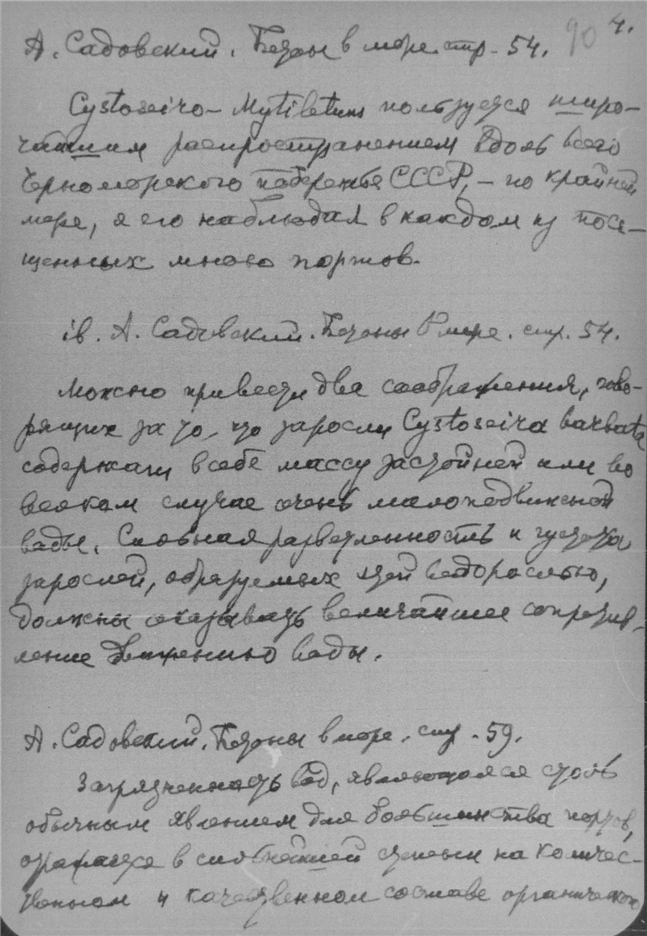 4.
90
А. Садовский. Бетоны в море. стр. 54.
Cystoseira-Mytiletum пользуется широ-
чайшим распространением вдоль всего
Черноморского побережья СССР, – по крайней
мере, я его наблюдал в каждом из посе-
щенных мною портов.
ib. А. Садовский. Бетоны в море. стр. 54.
Можно привести два соображения, гово-
рящих за то, что заросли Cystoseira barbata
содержат в себе массу застойной или во
всяком случае очень малоподвижной
воды. Сложная разветвленность и густота
зарослей, образуемых этой водорослью,
должны оказывать величайшее сопротив-
ление движению воды.
А. Садовский. Бетоны в море. стр. 59.
Загрязненность вод, являющаяся столь
обычным явлением для большинства портов,
отражается в сильнейшей степени на количес-
твенном и качественном составе органической